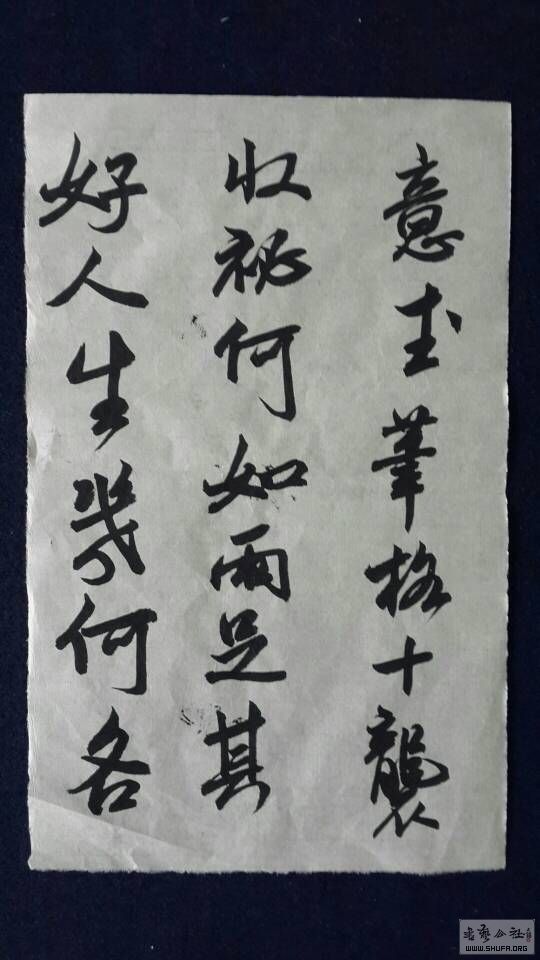 意玉筆格十襲
收祕何如兩足其
好人生幾何各
書藝公社
WWW.SHUFA.ORG